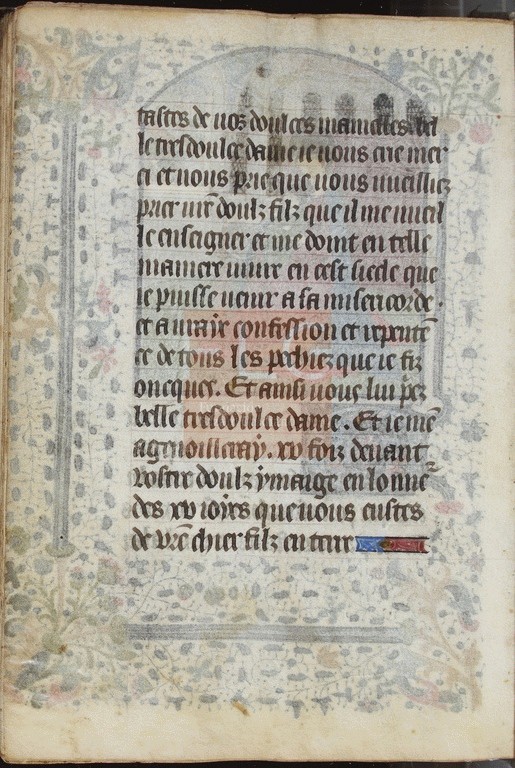 tastes de uoz doulces mamelles. bel
le tresdoulce dame ie uous crie mer
ci et uous prie que uous uueilliez
prier vr̄e doulz filz que il me uueil
le enseigner et me doint en telle
maniere uiure en cest siecle que
ie puisse uenir a sa misericorde.
et a uraye confession et repentē
ce de tous les pechiez que ie fiz
oncques. Et ainsi uous lui pez
belle tresdoulce dame. Et ie mē
agenoilleray. xv foiz deuant
vostre doulz ymaige en lonnē
des xv ioyes que uous eustes
de vr̄e chier filz en terre